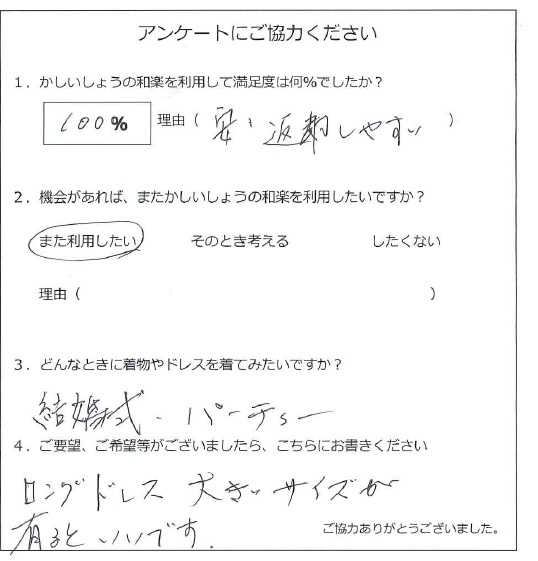 アンケートにご協力ください
1．かしいしょうの和楽を利用して満足度は何％でしたか？
100％ 理由（ 安い 返却しやすい ）
2．機会があれば、またかしいしょうの和楽を利用したいですか？
また利用したい そのとき考える したくない
理由（ ）
3．どんなときに着物やドレスを着てみたいですか？
結婚式、パーティー
4．ご要望、ご希望等がございましたら、こちらにお書きください
ロングドレス 大きいサイズが
有るといいです.
ご協力ありがとうございました。